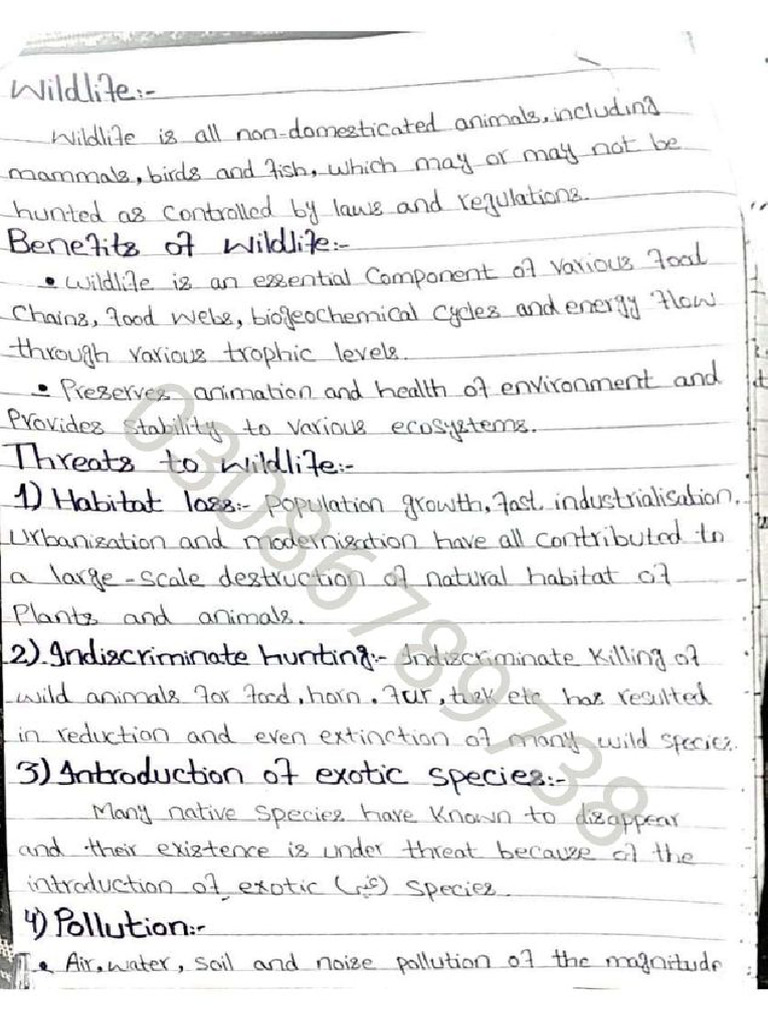 Wildlife:-
Wildlife is all non-domesticated animals, including
mammals, birds and fish, which may or may not be
hunted as controlled by laws and regulations.
Benefits of wildlife:-
• Wildlife is an essential Component of various food
Chains, food webs, biogeochemical Cycles and energy flow
through various trophic levels.
• Preserves animation and health of environment and
Provides stability to various ecosystems.
Threats to wildlife:-
1) Habitat loss:- Population growth, fast industrialisation,
Urbanization and modernisation have all contributed to
a large-scale destruction of natural habitat of
Plants and animals.
2) Indiscriminate hunting:- Indiscriminate Killing of
wild animals for food, horn, fur, tusk etc has resulted
in reduction and even extinction of many wild species.
3) Introduction of exotic species:-
Many native species have Known to disappear
and their existence is under threat because of the
introduction of exotic (غیر) species.
4) Pollution:-
• Air, water, soil and noise pollution of the magnitude
03086789738